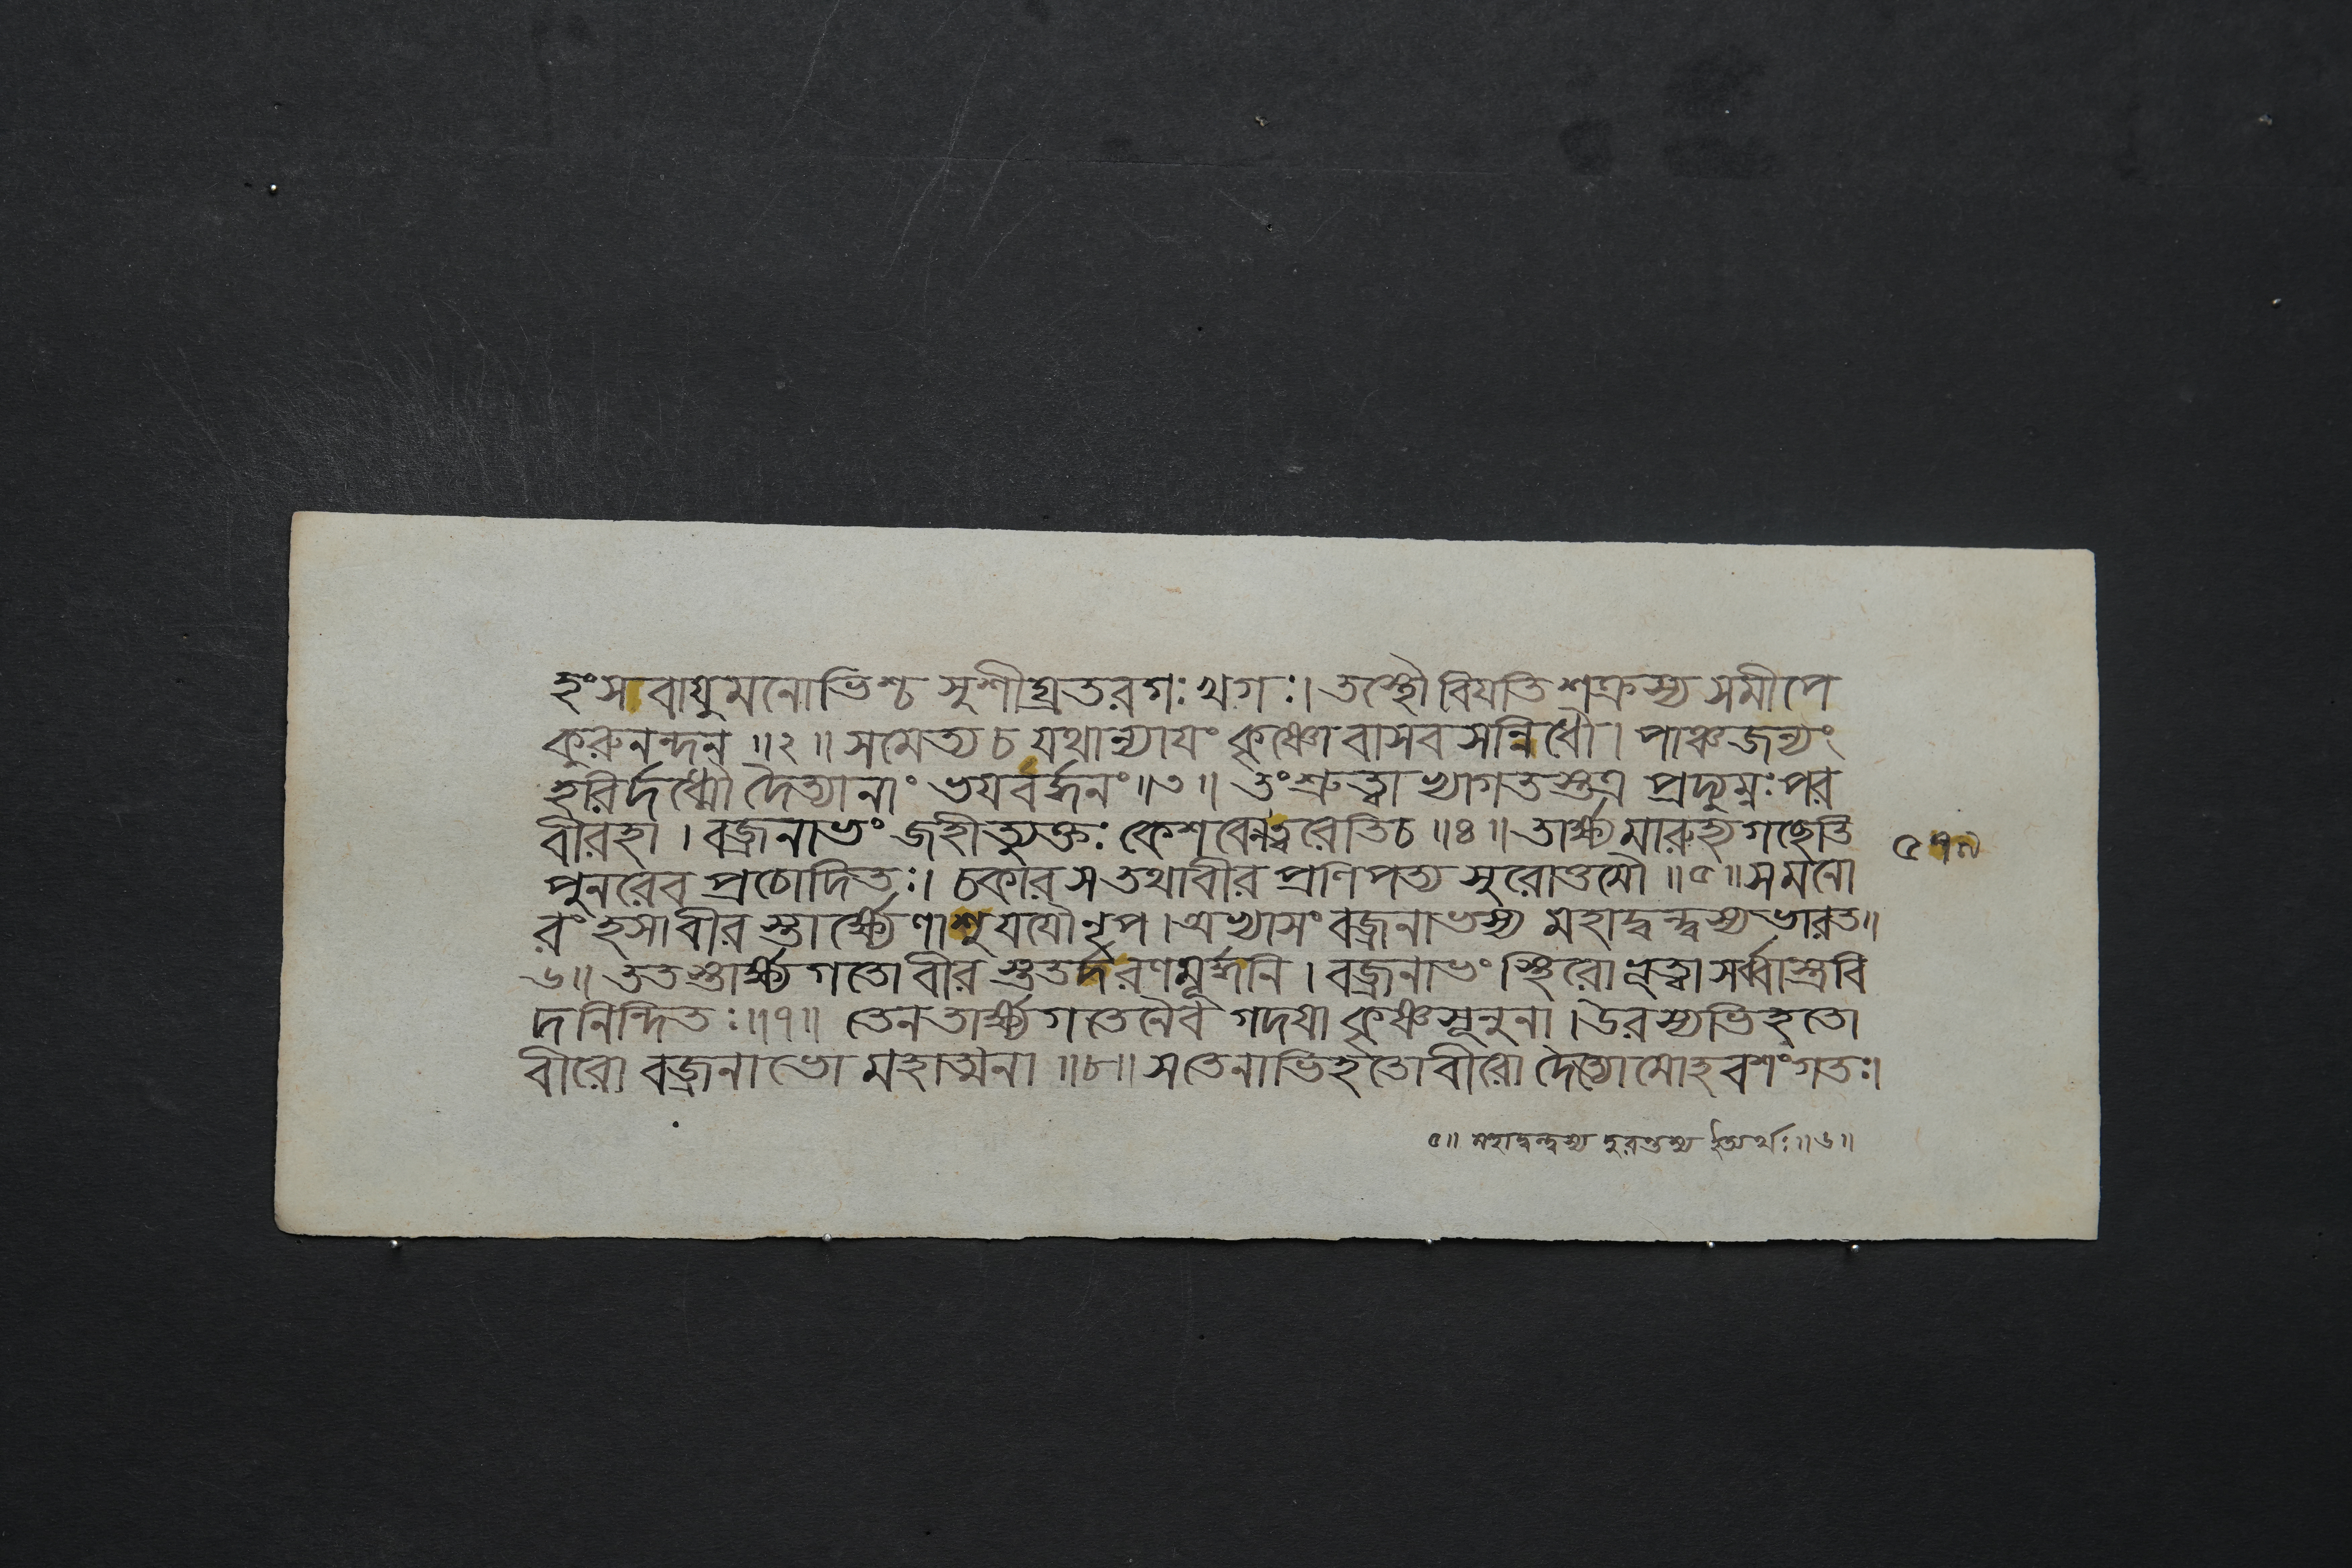 হংস বাযুমনোভিশ্চ সুশীঘ্রতরগঃ খগঃ। তস্থৌ বিযতি শক্রস্য সমীপে
কুরুনন্দন ॥২॥ সমেত্য চ যথান্যাযং কৃষ্ণো বাসব সন্নিধৌ। পাঞ্চজন্যং
হরির্দধ্মৌ দৈত্যানাং ভযবর্দ্ধনং॥৩॥ তং শ্রুত্বা খ্যাগতস্তত্র প্রদ্যুম্নঃ পর
বীরহা । বজ্রনাভং জহীত্যুক্তঃ কেশবেনত্বরেতিচ ॥৪॥ তার্ক্ষ্যমারুহ্য গছেতি
পুনরেব প্রচোদিতঃ। চকার স তথাবীর প্রণিপত্য সুরোত্তমৌ ॥৫॥ স মনো
রংহসাবীর স্তার্ক্ষ্যেণাশু যযৌ নৃপ। অভ্যাসং বজ্রনাভস্য মহাদ্বন্দ্বস্য ভারত॥
৬॥ ততস্তার্ক্ষ্য গতো বীর স্ততর্দ রণমূর্দ্ধনি । বজ্রনাভং স্থিরো ভূত্বা সর্ব্বাস্ত্রবি
দনিন্দিতঃ॥৭॥ তেন তার্ক্ষ্য গতেনৈব গদযা কৃষ্ণসূনুনা। উরস্যভিহতো
বীরো বজ্রনাভো মহাত্মনা ॥৮॥ স তেনাভিহতোবীরো দৈত্যোমোহবশংগতঃ।
৫॥ মহাদ্বন্দ্বস্য দুরন্তস্য ইত্যর্থঃ॥৬॥